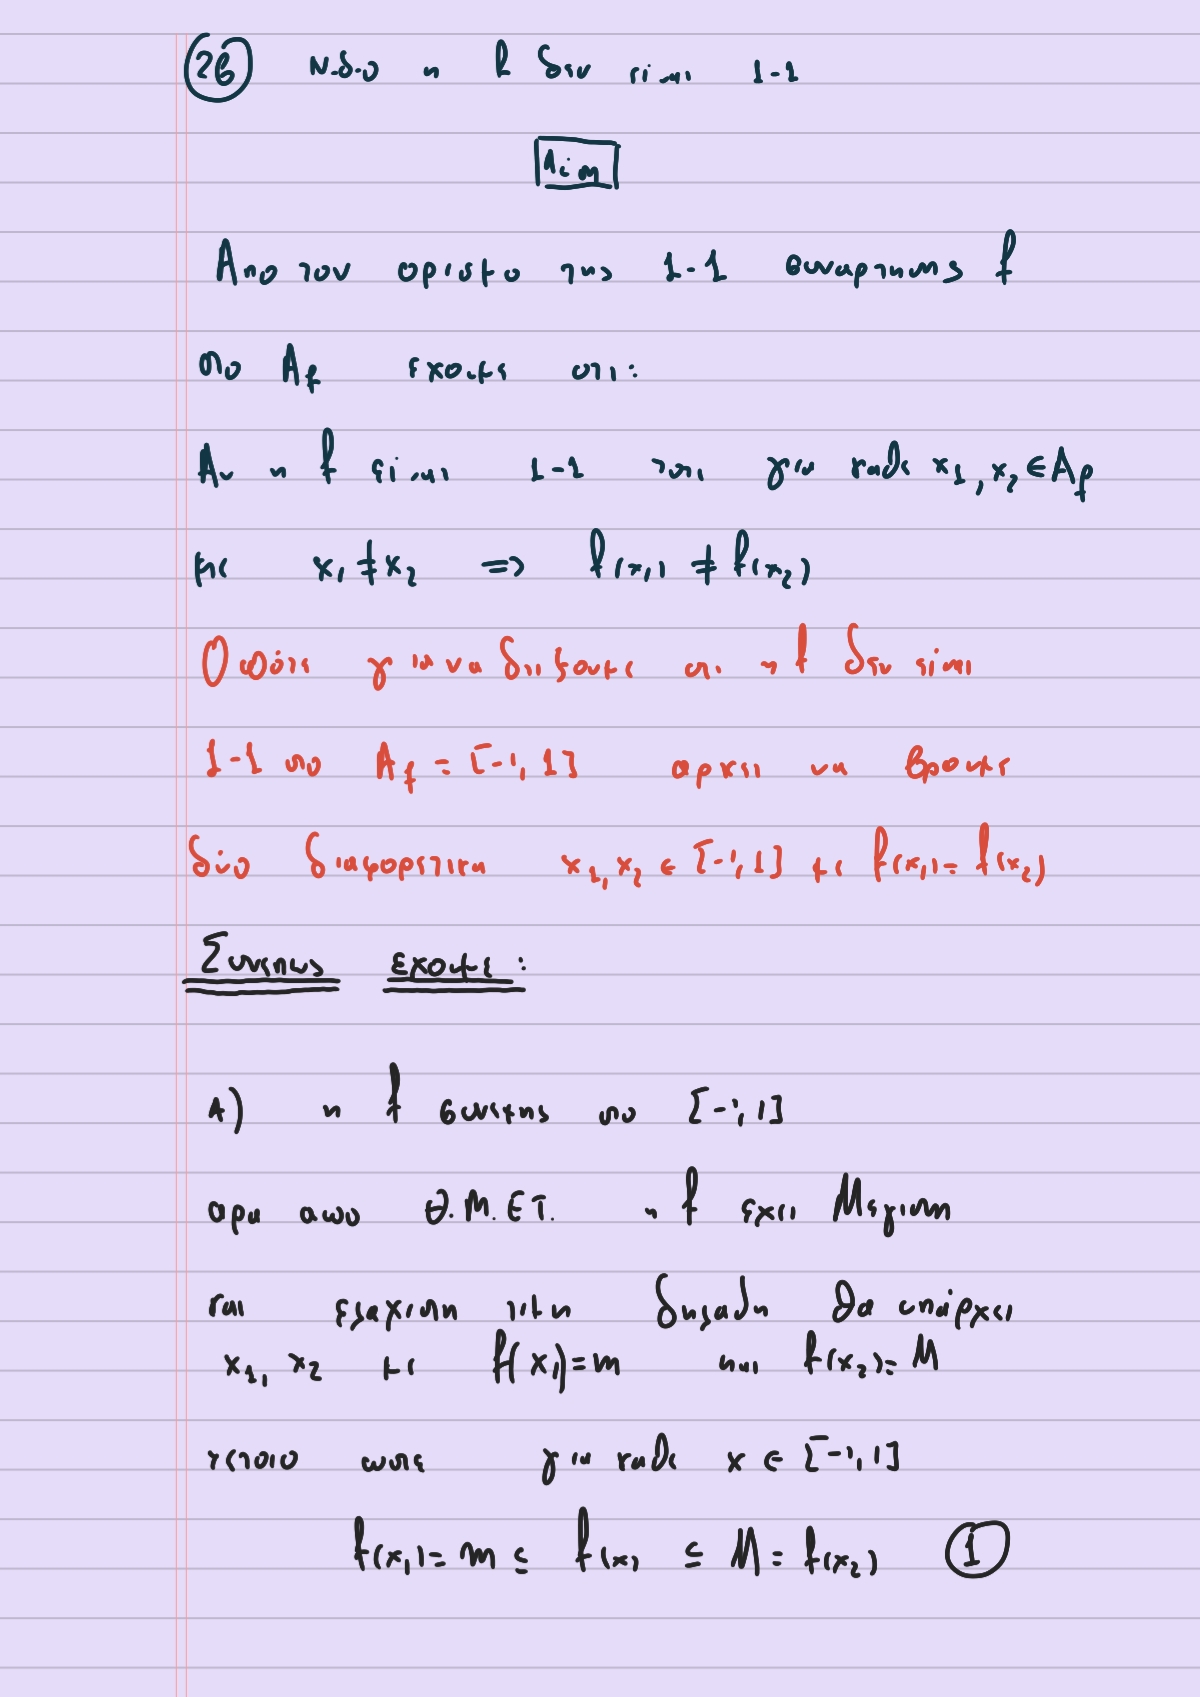 26 Ν.δ.ο η f δεν ειναι 1-1
Λυση
Απο τον ορισμο της 1-1 συναρτησης f
στο A_f εχουμε οτι:
Αν η f είναι 1-1 τοτε για καθε x₁, x₂ ∈ A_f
με x₁ ≠ x₂ ⇒ f(x₁) ≠ f(x₂)
Οπότε για να δειξουμε οτι η f δεν είναι
1-1 στο A_f = [-1, 1] αρκει να βρουμε
δύο διαφορετικα x₁, x₂ ∈ [-1, 1] με f(x₁) = f(x₂)
Συνεπως εχουμε:
Α) η f συνεχης στο [-1, 1]
αρα απο Θ.Μ.ΕΤ. η f εχει Μεγιστη
και ελαχιστη τιμη δηλαδη θα υπάρχει
x₁, x₂ με f(x₁) = m και f(x₂) = M
τετοιο ωστε για καθε x ∈ [-1, 1]
f(x₁) = m ≤ f(x) ≤ M = f(x₂) 1